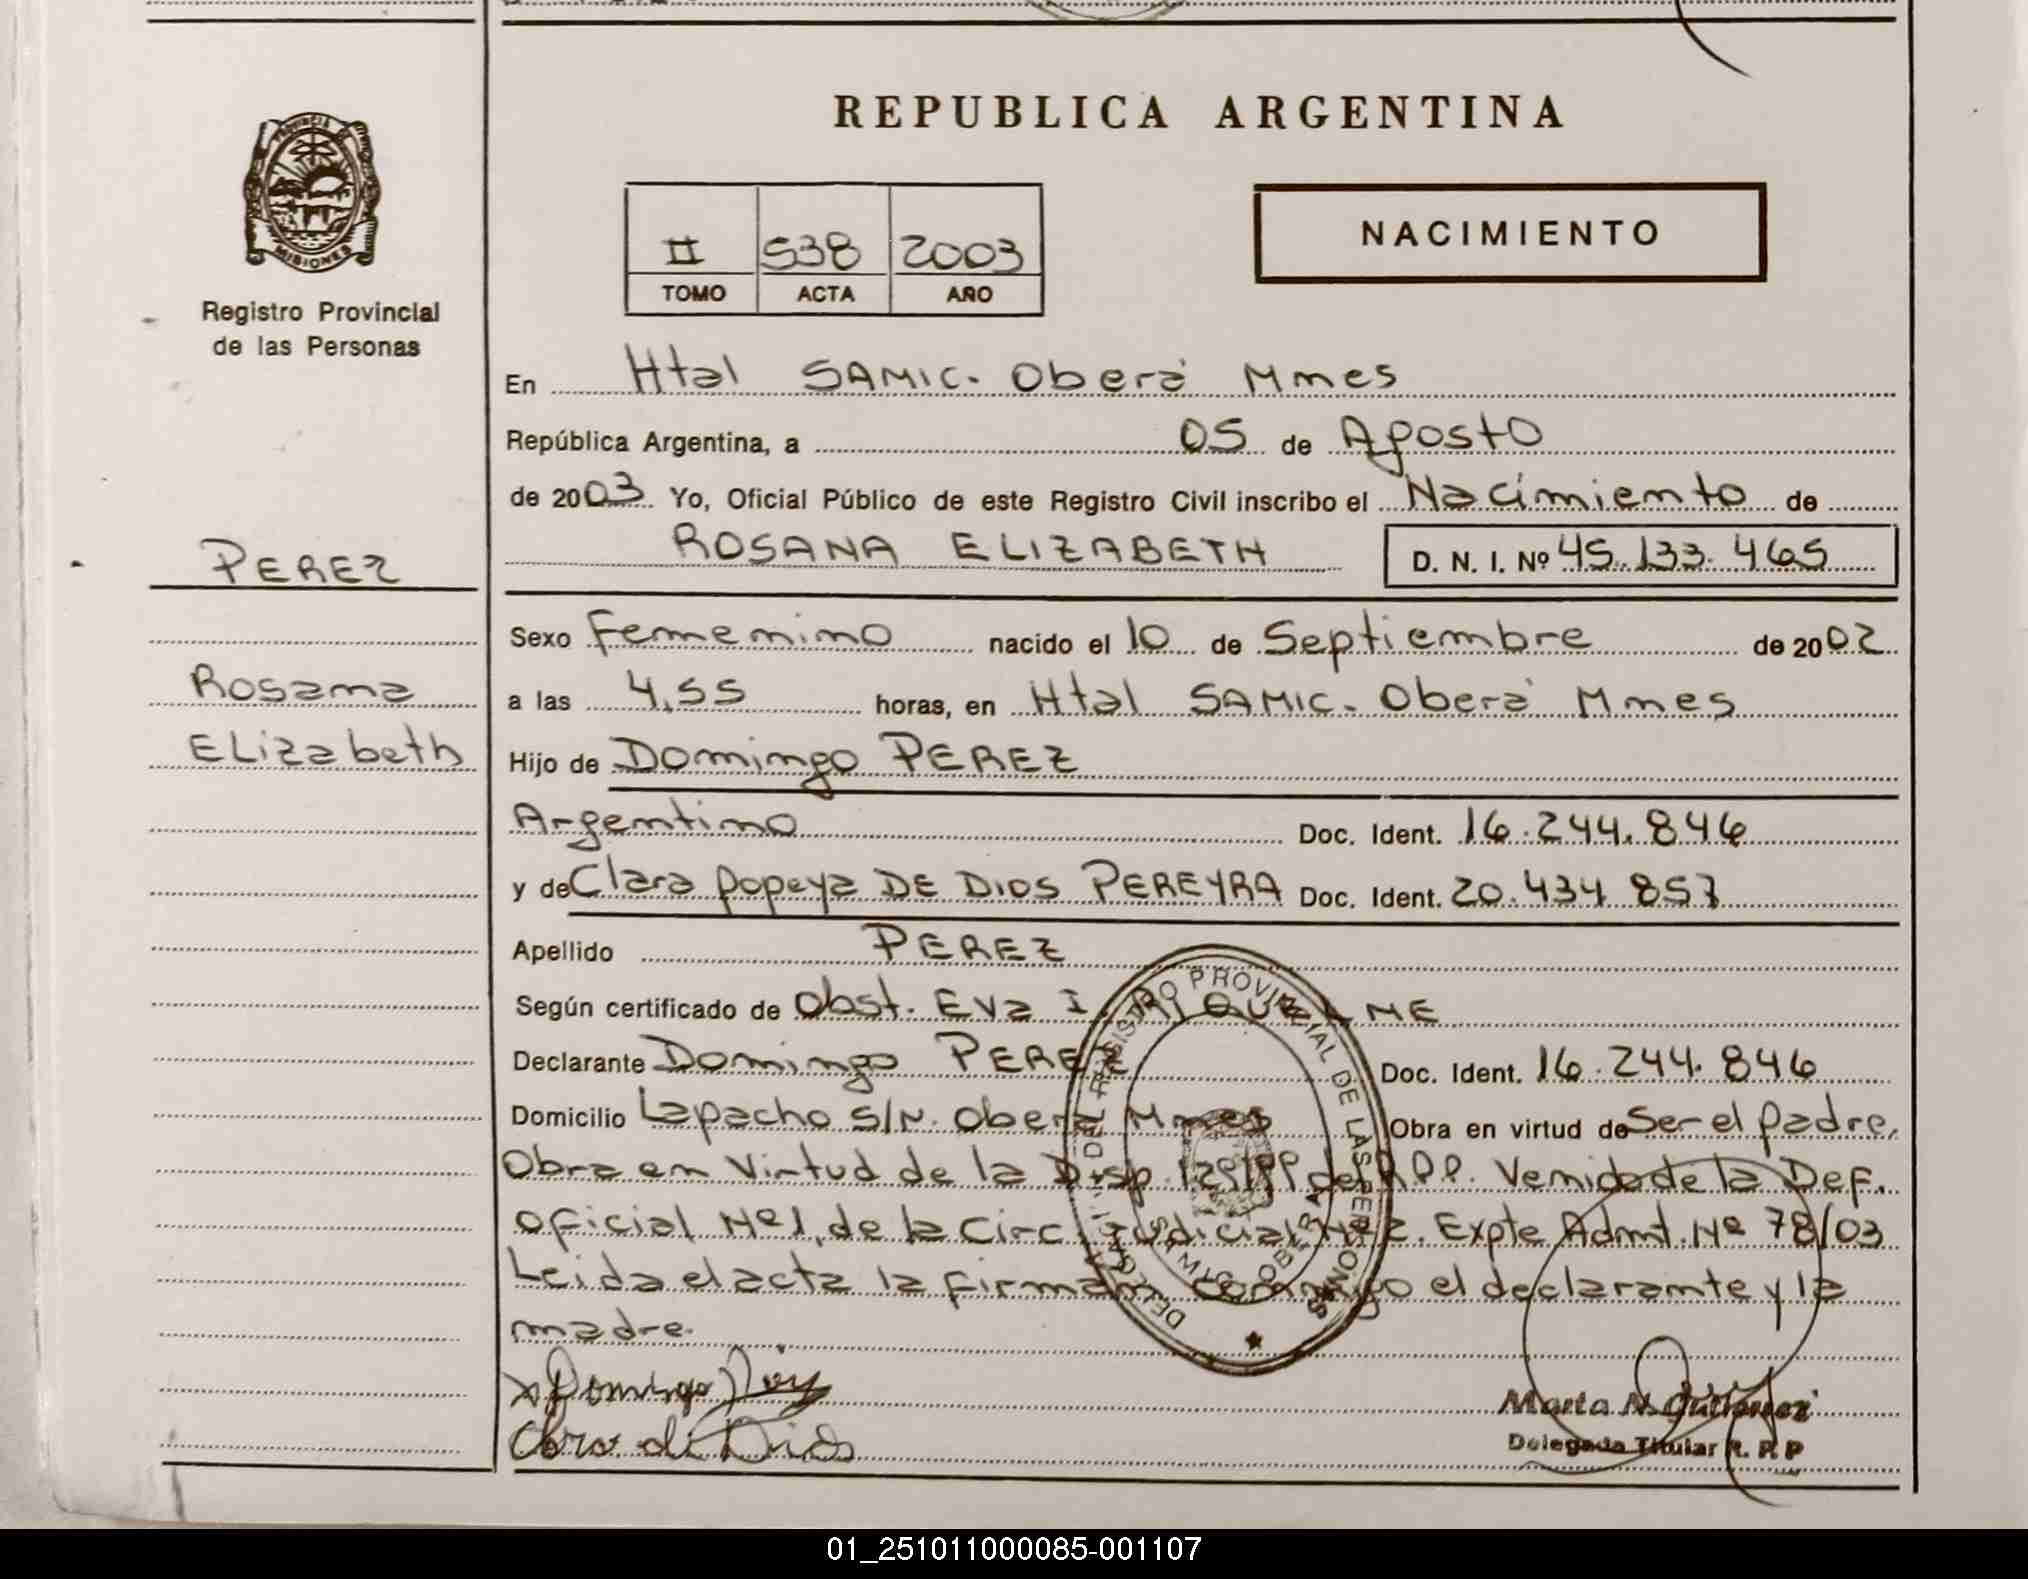 REPUBLICA ARGENTINA
PROVINCIA DE
MISIONES
Registro Provincial
de las Personas
II 538 2003
TOMO ACTA AÑO
NACIMIENTO
En Htal SAMIC. Oberá Mnes
República Argentina, a 05 de Agosto
de 2003 Yo, Oficial Público de este Registro Civil inscribo el Nacimiento de
ROSANA ELIZABETH D. N. I. Nº 45.133.465
PEREZ
Rosana
Elizabeth
Sexo Femenino nacido el 10 de Septiembre de 2002
a las 4,55 horas, en Htal SAMIC. Oberá Mnes
Hijo de Domingo PEREZ
Argentino Doc. Ident. 16.244.846
y de Clara popeya DE DIOS PEREYRA Doc. Ident. 20.434 857
Apellido PEREZ
Según certificado de Obst. Eva I. RIQUELME
Declarante Domingo PEREZ Doc. Ident. 16.244.846
Domicilio Lapacho s/N. Oberá Mnes Obra en virtud de Ser el padre,
Obra en Virtud de la Disp. 129/99 del R.P.P. Venida de la Def.
Oficial Nº1, de la Circ. Judicial Nº2. Expte Admt. Nº 78/03
Leida el acta la firman conmigo el declarante y la
madre.
DELEGACION DEL REGISTRO PROVINCIAL DE LAS PERSONAS
OBERA
x Domingo
de Dios
Marta N. Gutierrez
Delegada Titular R. P. P
01_251011000085-001107